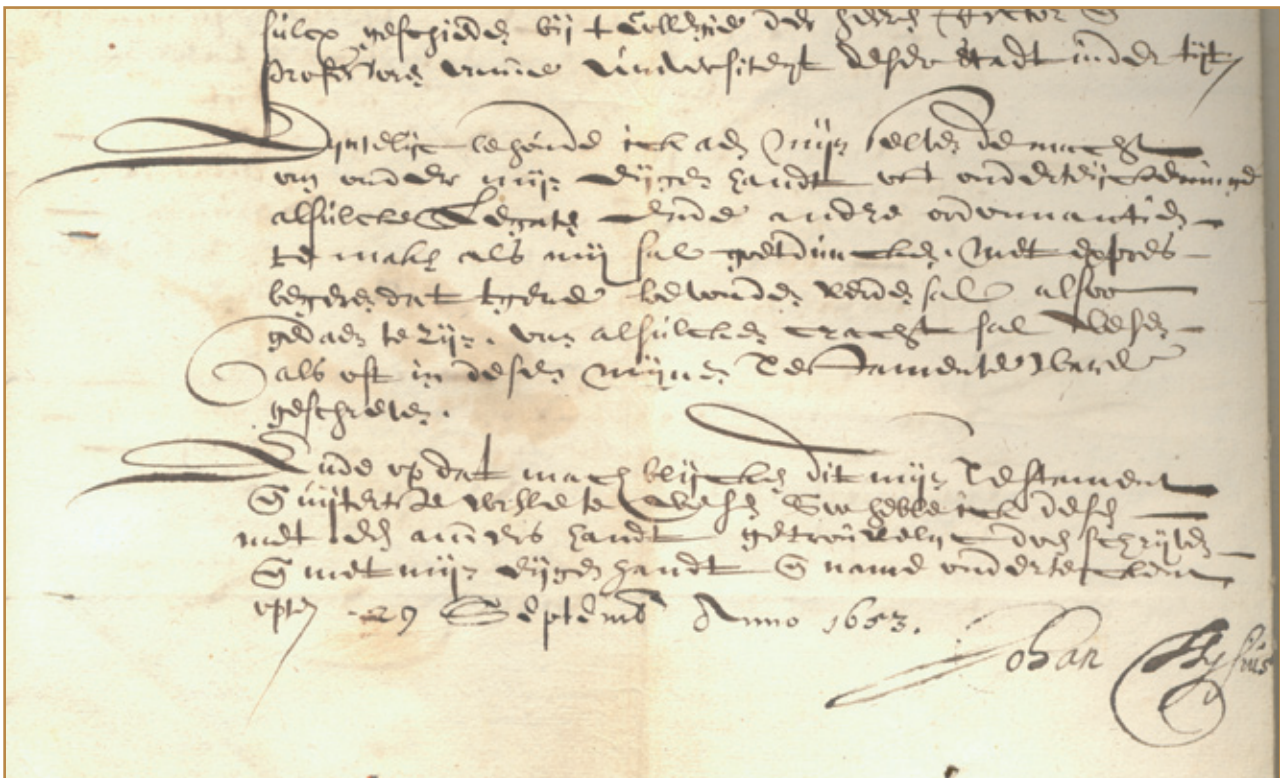 sulcx geschieden bij t Collegie der heeren Rector &
Professoren vande Universiteijt deser stadt inder tijt
Eyntelijc behoude ick aen mijn selven de macht
om onder mijn eijgen handt ofte ondertijckeninge
alsulcke Legaten ende andre ordonnantien
te maken als mij sal goetduncken. Met expres
begeren dat tgene bevonden werden sal alsoo
gedaen te zijn, van alsulcken cracht sal wesen
als oft in desen mijnen Testamente ware
geschreven.
Ende op dat mach blijcken dit mijn Testament
& uijterste wille te wesen Soo hebbe ick desen
met een anders handt getrouwelijc doen schrijven
& met mijn eijgen handt & name onderteickent
opten 29 Septemb Anno 1653.
Johan Thysius